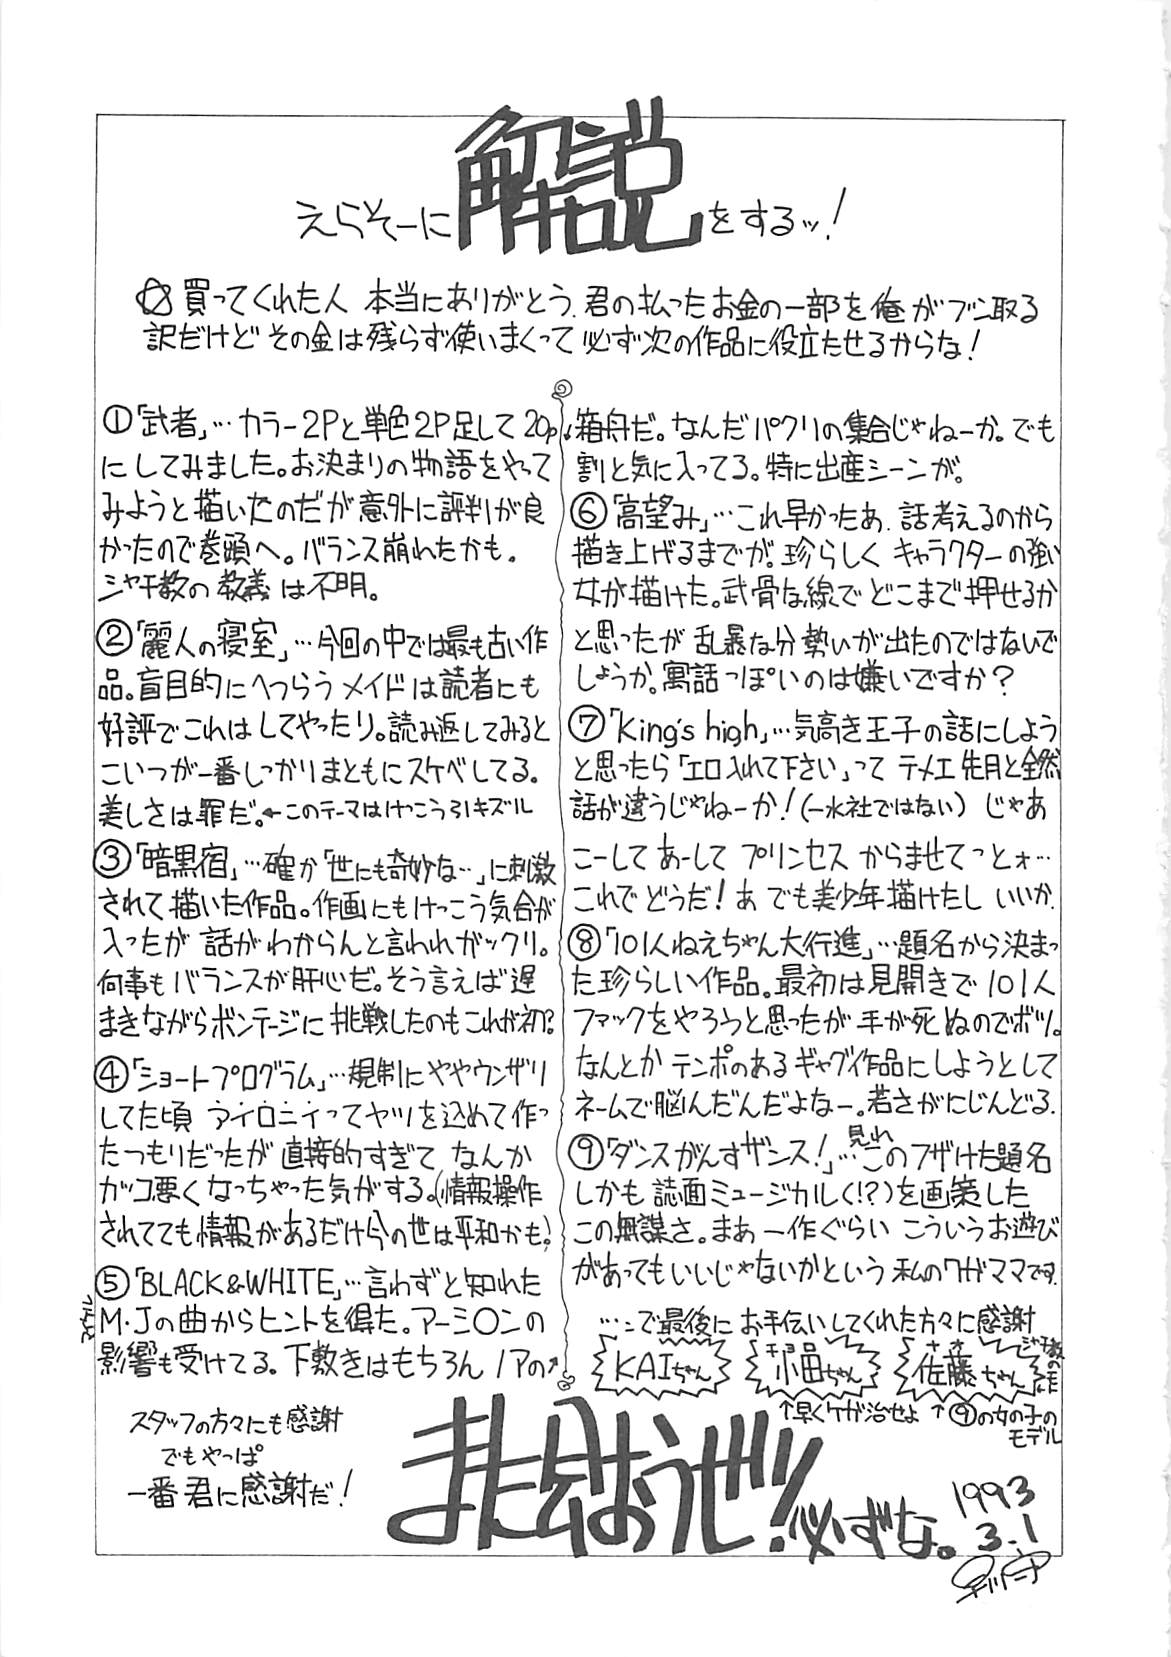 えらそーに解説をするッ!
☆買ってくれた人 本当にありがとう.君の払ったお金の一部を俺がブン取る
訳だけど その金は残らず使いまくって 必ず次の作品に役立たせるからな!
①「武者」…カラー2Pと単色2P足して20P
にしてみました。お決まりの物語をやって
みようと描いたのだが意外に評判が良
かったので巻頭へ。バランス崩れたかも。
シャチ教の教義は不明。
②「麗人の寝室」…今回の中では最も古い作
品。盲目的にへつらうメイドは読者にも
好評でこれはしてやったり。読み返してみると
こいつが一番しっかりまともにスケベしてる。
美しさは罪だ。←このテーマはけっこう引キズル
③「暗黒宿」…確か「世にも奇妙な…」に刺激
されて描いた作品。作画にもけっこう気合が
入ったが 話がわからんと言われガックリ。
何事もバランスが肝心だ。そう言えば遅
まきながらボンテージに挑戦したのもこれが初?
④「ショートプログラム」…規制にややウンザリ
してた頃 アイロニィってヤツを込めて作っ
たつもりだったが 直接的すぎて なんか
カッコ悪くなっちゃった気がする。(情報操作
されてても情報があるだけ今の世は平和かも)
⑤「BLACK&WHITE」…言わずと知れた
M・Jの曲からヒントを得た。アーシ〇ンの
影響も受けてる。下敷きはもちろんノアの↗
↓箱舟だ。なんだパクリの集合じゃねーか。でも
割と気に入ってる。特に出産シーンが。
⑥「高望み」…これ早かったあ.話考えるのから
描き上げるまでが.珍らしくキャラクターの強い
女が描けた。武骨な線でどこまで押せるか
と思ったが 乱暴な分 勢いが出たのではないで
しょうか。寓話っぽいのは嫌いですか?
⑦「King's high」…気高き王子の話にしよう
と思ったら「エロ入れて下さい」って テメエ先月と全然
話が違うじゃねーか!(一水社ではない) じゃあ
こーしてあーして プリンセスからませてっとォ…
これでどうだ!あ でも美少年描けたし いいか.
⑧「101人ねえちゃん大行進」…題名から決まっ
た珍らしい作品。最初は見開きで101人
ファックをやろうと思ったが手が死ぬのでボツ。
なんとかテンポのあるギャグ作品にしようとして
ネームで脳んだんだよなー。若さがにじんどる.
⑨「ダンスがんすザンス!」…見れこのフザけた題名
しかも誌面ミュージカル(!?)を画策した
この無謀さ。まあ一作ぐらい こういうお遊び
があってもいいじゃないかという私のワガママです.
…で最後に お手伝いしてくれた方々に感謝
KAIちゃん
小田ちゃん
佐藤ちゃん
↑早くケガ治せよ
↑⑨の女の子の
モデル
スタッフの方々にも感謝
でもやっぱ
一番君に感謝だ!
また会おうぜッ!必ずな。
1993
3.1